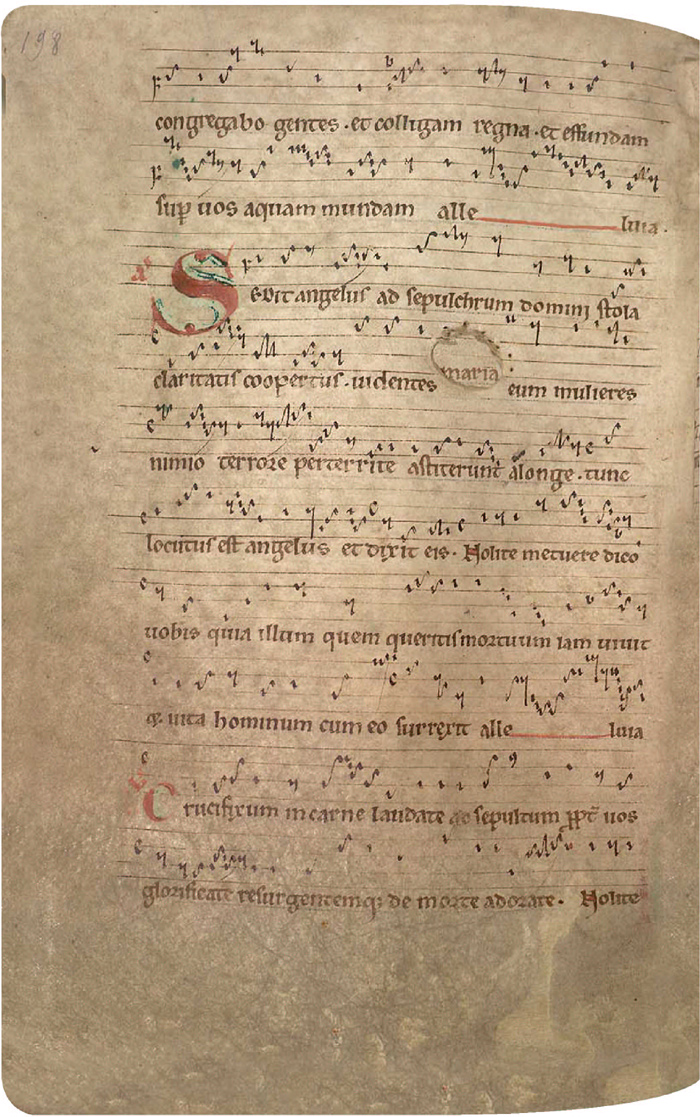 198
congregabo gentes · et colligam regna · et effundam
sup uos aquam mundam alle luia ·
Sedit angelus ad sepulchrum domini stola
claritatis coopertus · uidentes maria eum mulieres
nimio terrore perterrite astiterunt alonge · tunc
locutus est angelus et dixit eis · Nolite metuere dico
uobis quia illum quem queritis mortuum iam uiuit
uita hominum cum eo surrexit alle luia
Crucifixum in carne laudate sepultum ppt uos
glorificate resurgentemq; de morte adorate · Nolite